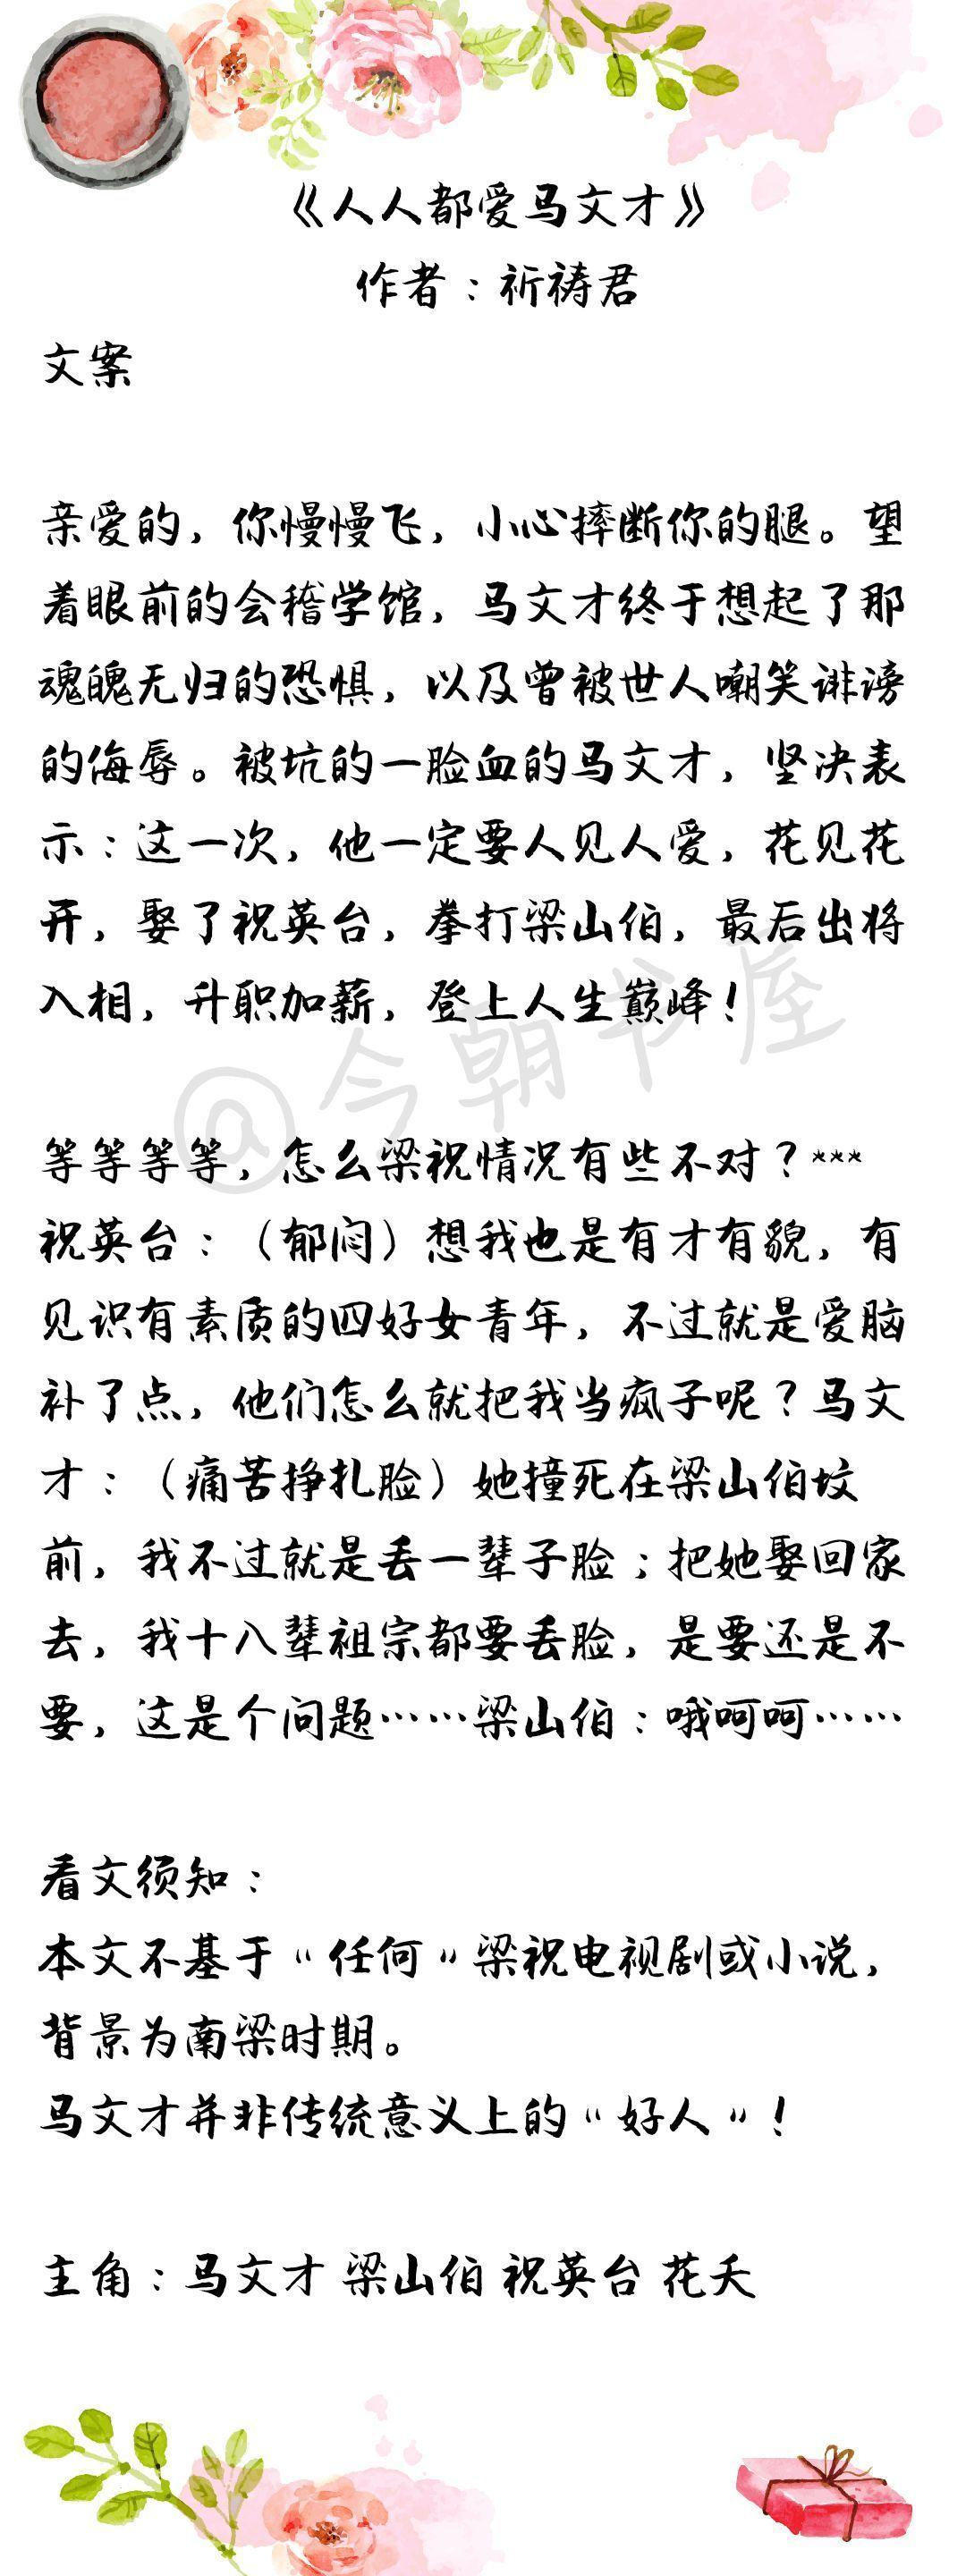 《人人都爱马文才》
作者：祈祷君
文案
亲爱的，你慢慢飞，小心摔断你的腿。望
着眼前的会稽学馆，马文才终于想起了那
魂魄无归的恐惧，以及曾被世人嘲笑诽谤
的侮辱。被坑的一脸血的马文才，坚决表
示：这一次，他一定要人见人爱，花见花
开，娶了祝英台，拳打梁山伯，最后出将
入相，升职加薪，登上人生巅峰！
@今朝书屋
等等等等，怎么梁祝情况有些不对？***
祝英台：（郁闷）想我也是有才有貌，有
见识有素质的四好女青年，不过就是爱脑
补了点，他们怎么就把我当疯子呢？马文
才：（痛苦挣扎脸）她撞死在梁山伯坟
前，我不过就是丢一辈子脸；把她娶回家
去，我十八辈祖宗都要丢脸，是要还是不
要，这是个问题……梁山伯：哦呵呵……
看文须知：
本文不基于“任何”梁祝电视剧或小说，
背景为南梁时期。
马文才并非传统意义上的“好人”！
主角：马文才 梁山伯 祝英台 花夭